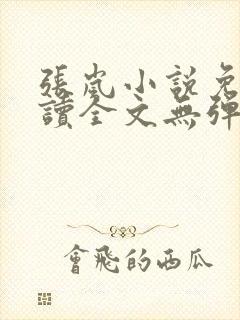 張嵐小說免
讀全文無彈
會飛的西瓜